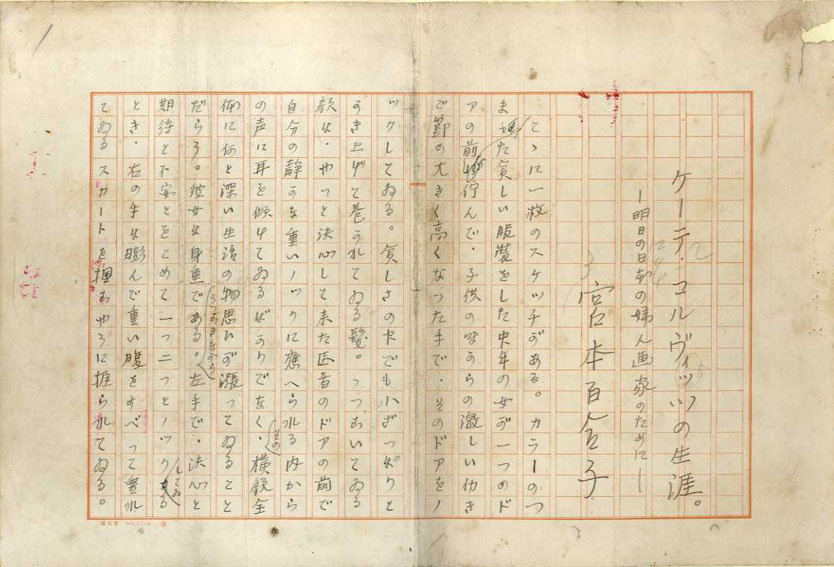 ケーテ・コルヴィッツの生涯。
―明日の日本の婦人画家のために―
宮本百合子
こゝに一枚のスケッチがある。カラーのつ
まった貧しい服装をした中年の女が一つのド
アの前に佇んで、子供の時からの激しい働き
で節の大きく高くなった手で、そのドアをノ
ックしてゐる。貧しさの中でも小ざっぱりと
かき上げて巻かれてゐる髪。うつむいてゐる
顔は、やっと決心して来た医者のドアの前で
自分の静かな重いノックに應へられる内から
の声に耳を傾けてゐるばかりでなく、その横顔全
体に何と深い生活の物思ひが漲ってゐること
だらう。彼女は身重である。うつむきながら左手で、決心と
期待と不安とをこめて一つ二つとノックしてゐる
とき、右の手は膨んで重い腹をすべって垂れ
てゐるスカートを掴むやうに握られてゐる。